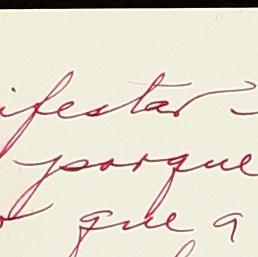 ifestar
porque
que a